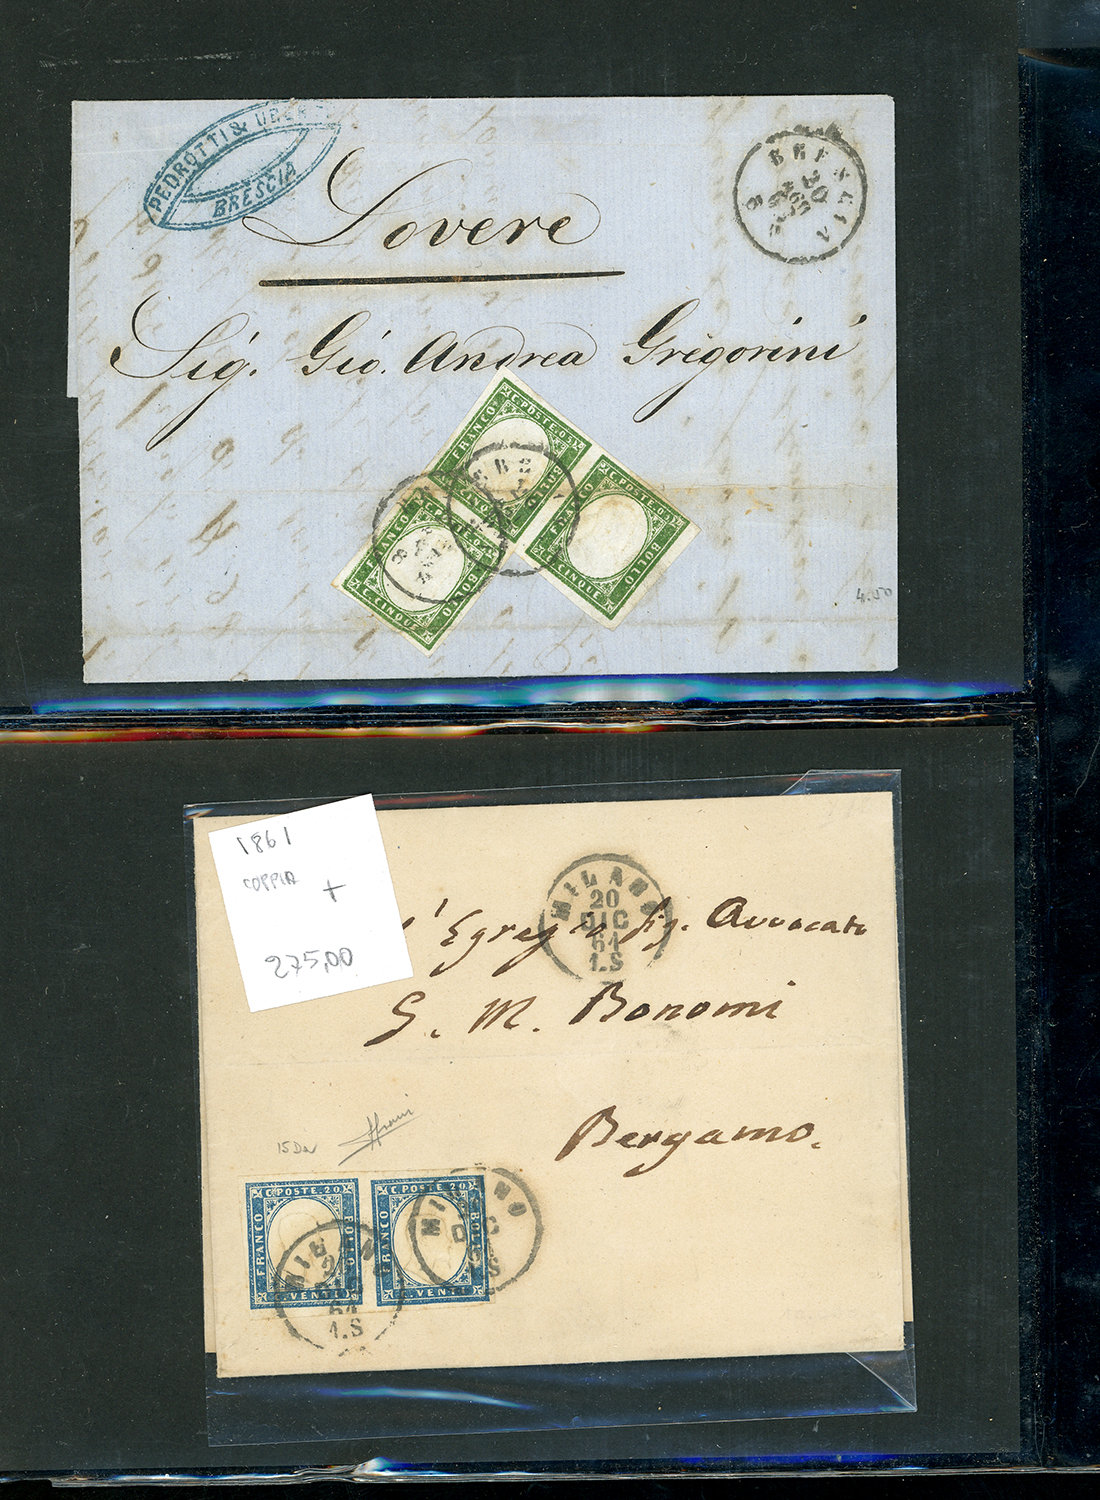 PEDROTTI &
BRESCIA
BRESCIA
20
63
8
Lovere
Sig. Gio. Andrea Gregorini
C. POSTE. 05
FRANCO
BOLLO
C. CINQUE
C. POSTE. 05
FRANCO
BOLLO
C. CINQUE
C. POSTE. 05
FRANCO
BOLLO
C. CINQUE
4.50
1861
COPPIA
+
275,00
MILANO
20
DIC
61
1.S
Egregio Sig. Avvocato
G. M. Bonomi
Bergamo.
15Da
C. POSTE. 20
FRANCO
BOLLO
C. VENTI
C. POSTE. 20
FRANCO
BOLLO
C. VENTI
MILANO
61
1.S
MILANO
DIC